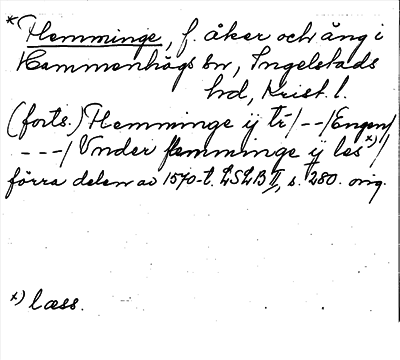 *Flemminge, f. åker och äng i
Hammenhögs sn, Ingelstads
hd, Krist. l.
(forts.) Flemminge ij ti/--/Engen/
---/ Vnder flemminge ij les x)/
förra delen av 1570-t. LSLB II, s. 280. orig.
x) læss.